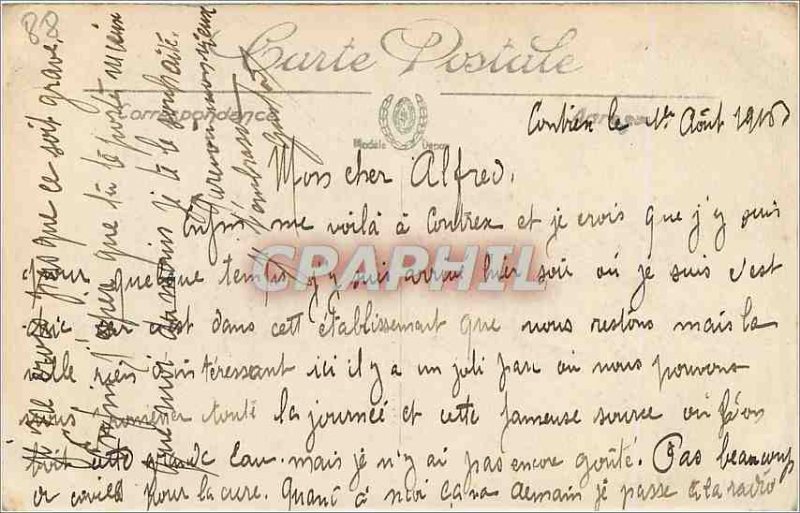 88
Carte Postale
Correspondance
Modèle Déposé
Contrex le 1er Août 1916
Mon cher Alfred,
Enfin me voilà à Contrex et je crois que j'y suis
pour quelque temps j'y suis arrivé hier soir où je suis c'est
chic car c'est dans cett établissement que nous restons mais la
ville rien d'intéressant ici il y a un joli parc où nous pouvons
nous promener toute la journée et cette fameuse source où l'on
boit cette grande eau. mais je n'y ai pas encore goûté. Pas beaucoup
de civils pour la cure. Quant à moi ça va demain je passe à la radio
je ne crois pas que ce soit grave.
Enfin j'espère que tu te porte bien
du moins je te le souhaite.
Au revoir mon vieux
t'embrasse
GRAPHIL